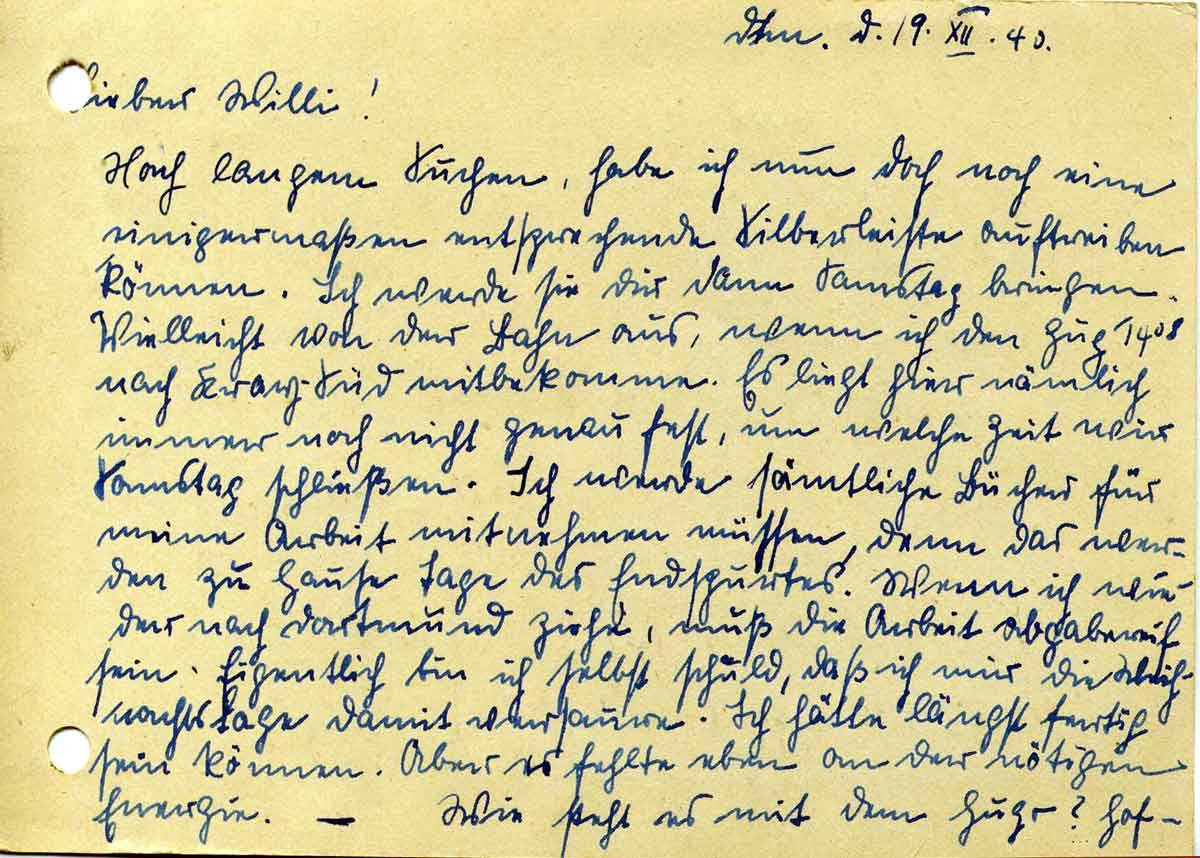 Dtm. d. 19. XII. 40.
Lieber Willi!
Nach langem Suchen, habe ich nun doch noch eine
einigermaßen entsprechende Silberleiste auftreiben
können. Ich werde sie dir dann Samstag bringen.
Vielleicht von der Bahn aus, wenn ich den Zug 14⁰⁸
nach Kray-Süd mitbekomme. Es liegt hier nämlich
immer noch nicht genau fest, um welche Zeit wir
Samstag schließen. Ich werde sämtliche Bücher für
meine Arbeit mitnehmen müssen, denn das wer-
den zu Hause Tage des Endspurtes. Wenn ich wie
der nach Dortmund ziehe, muß die Arbeit abgabereif
sein. Eigentlich bin ich selbst schuld, daß ich mir die Weih-
nachtstage damit versaure. Ich hätte längst fertig
sein können. Aber es fehlte eben an der nötigen
Energie. — Wie steht es mit dem Zuge? Hof-